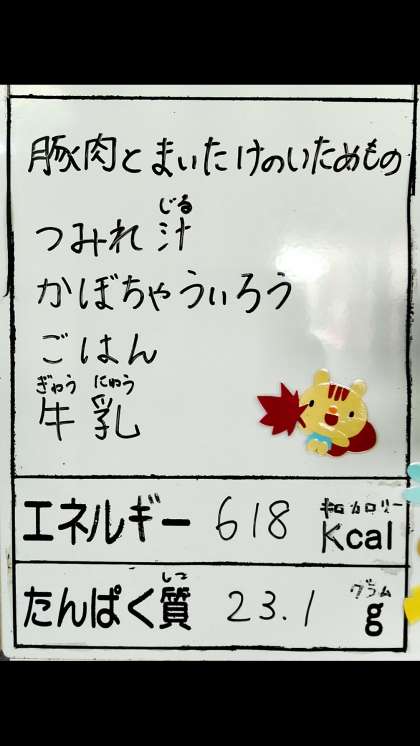 豚肉とまいたけのいためもの
じる
つみれ汁
かぼちゃういろう
ごはん
ぎゅう にゅう
牛乳
キロカロリー
エネルギー 618 Kcal
しつ グラム
たんぱく質 23.1 g